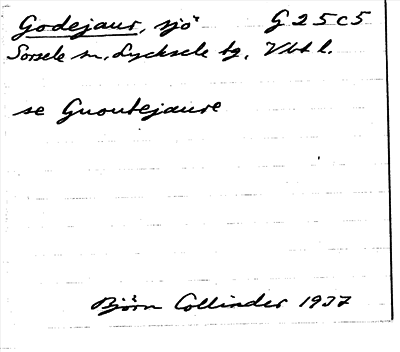 Godejaur, sjö G 25 c 5
Sorsele sn, Lycksele tg, Vbt l.
se Guoutejaure
Björn Collinder 1937